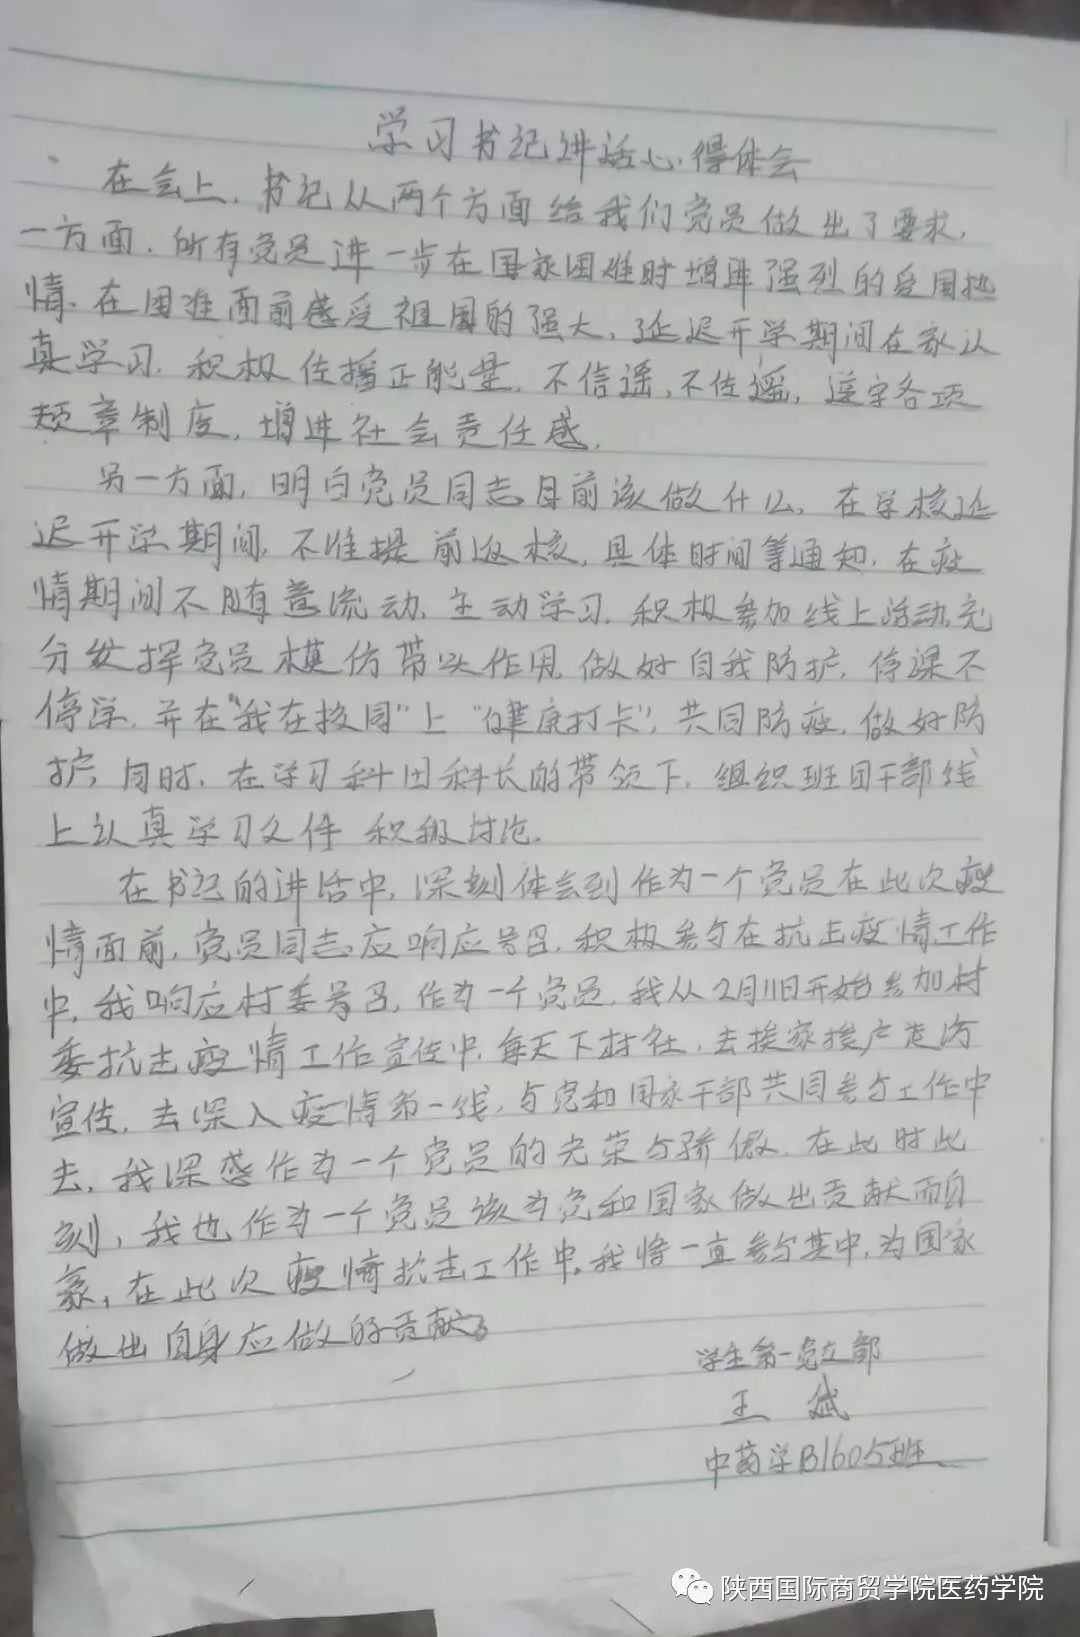 学习书记讲话心得体会
在会上，书记从两个方面给我们党员做出了要求，
一方面，所有党员进一步在国家困难时增进强烈的爱国热
情，在困难面前感受祖国的强大，延迟开学期间在家认
真学习，积极传播正能量，不信谣，不传谣，遵守各项
规章制度，增进社会责任感。
另一方面，明白党员同志目前该做什么，在学校延
迟开学期间，不准提前返校，具体时间等通知，在疫
情期间不随意流动，主动学习，积极参加线上活动，充
分发挥党员模仿带头作用，做好自我防护，停课不
停学，并在“我在校园”上“健康打卡”，共同防疫，做好防
护，同时，在学习科田科长的带领下，组织班团干部线
上认真学习文件 积极讨论。
在书记的讲话中，深刻体会到作为一个党员在此次疫
情面前，党员同志应响应号召，积极参与在抗击疫情工作
中，我响应村委号召，作为一个党员，我从2月11日开始参加村
委抗击疫情工作宣传中，每天下村社，去挨家挨户走访
宣传，去深入疫情第一线，与党和国家干部共同参与工作中
去，我深感作为一个党员的光荣与骄傲，在此时此
刻，我也作为一个党员该为党和国家做出贡献而自
豪，在此次疫情抗击工作中，我将一直参与其中，为国家
做出自身应做的贡献。
学生第一党支部
王 斌
中药学B1605班
陕西国际商贸学院医药学院